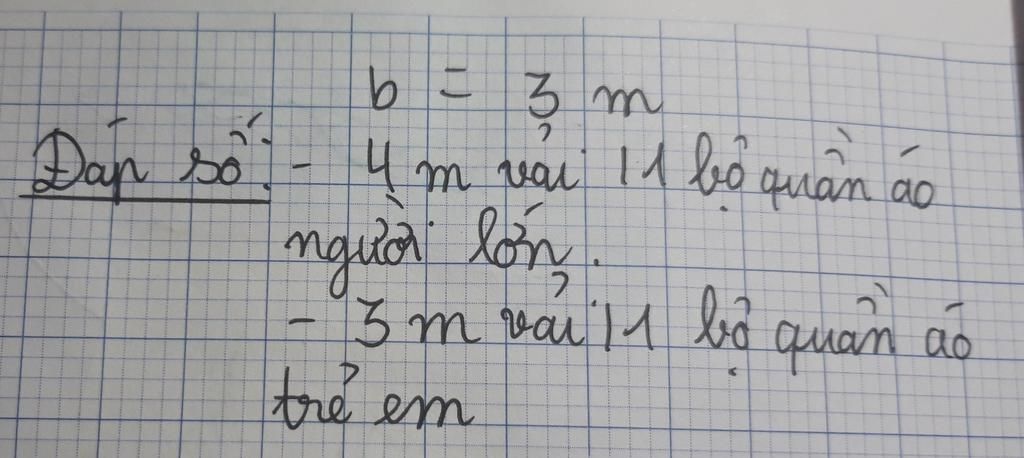 b = 3 m
Đáp số: - 4 m vải /1 bộ quần áo
người lớn.
- 3 m vải /1 bộ quần áo
trẻ em